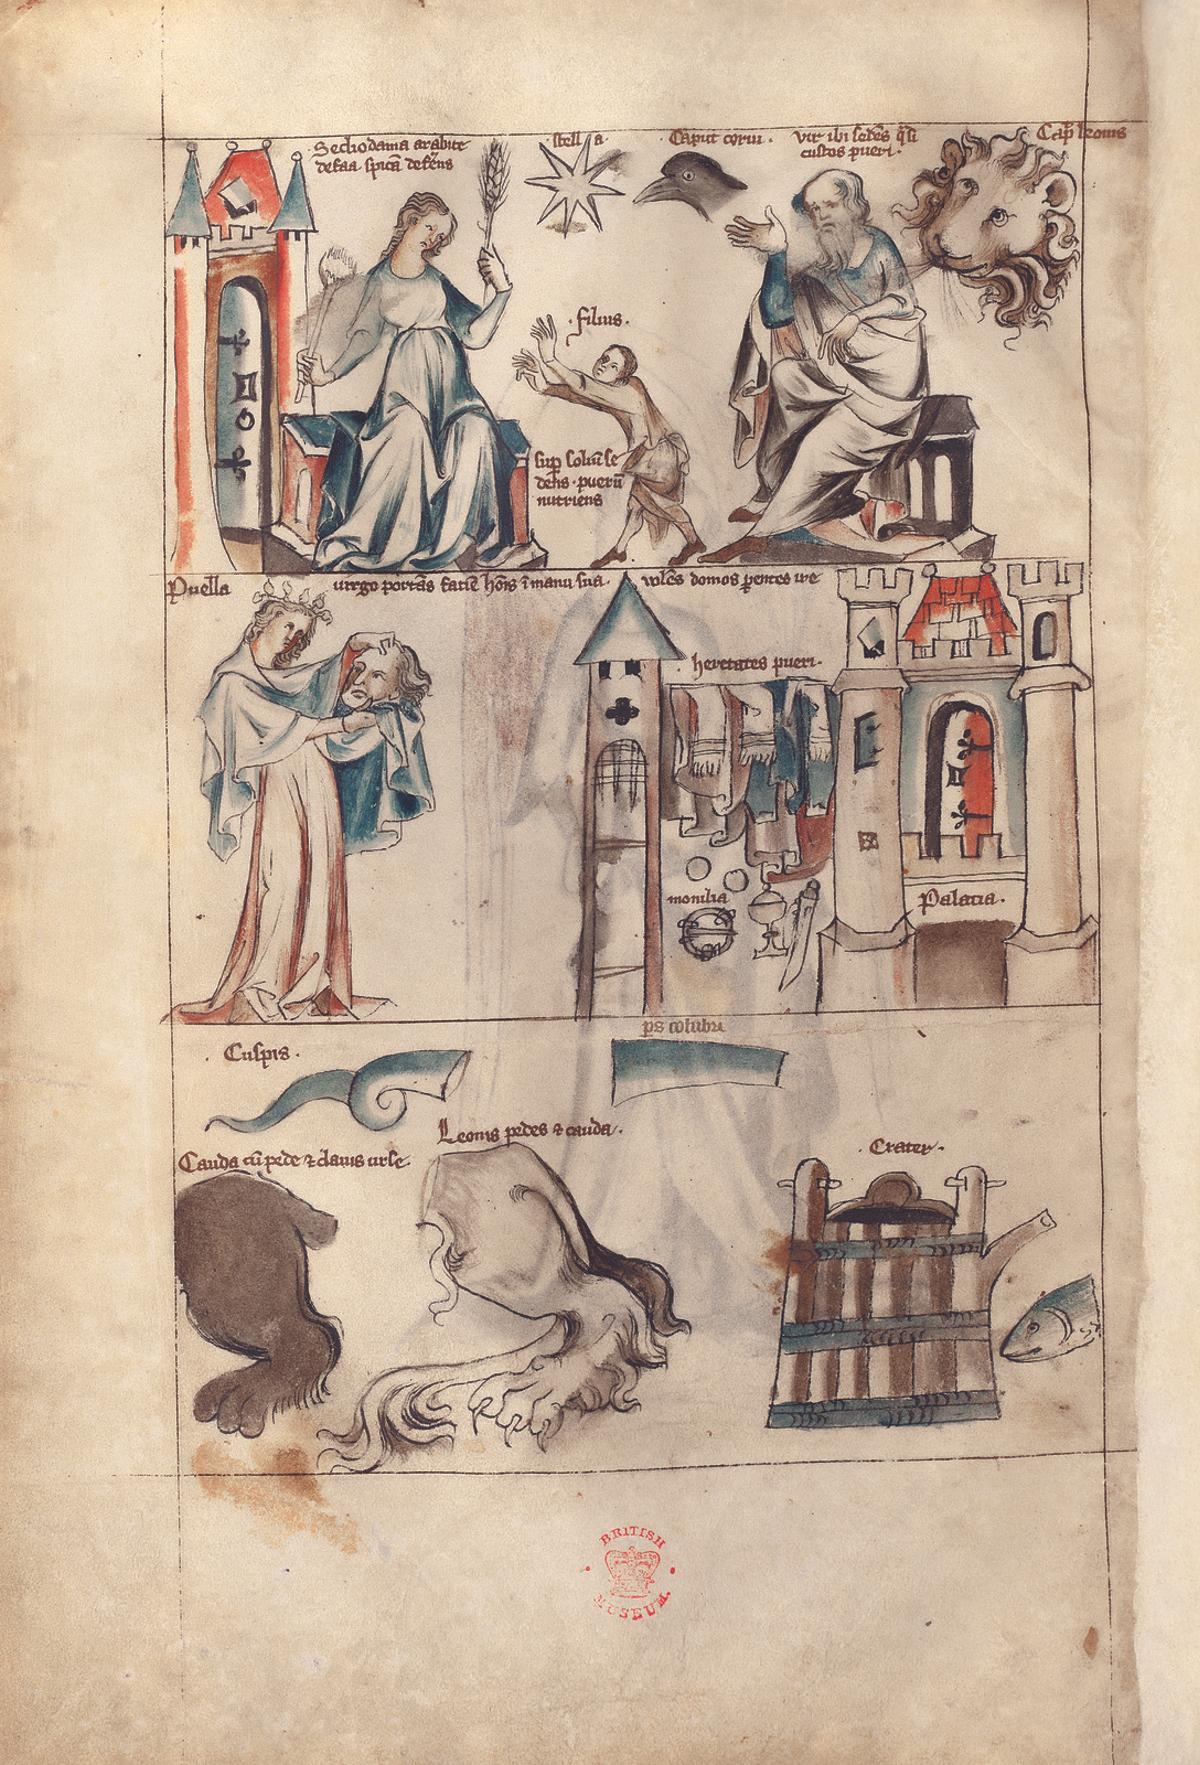 Sechodama arabice
defaa spicā defēns
stella
Caput corui.
vir ibi sedēs q̄si
custos pueri.
Cap̄ leonis
.filius.
sup̱ soliū se
dēns. puerū
nutriens
Puella virgo portās faciē hoīs ī manu sua.
domos
heretates pueri.
monilia
Palatia.
Cuspis.
ps colubri
Leonis pedes & cauda.
Cauda cū pede & clauis urse.
Crater.
BRITISH
MUSEUM